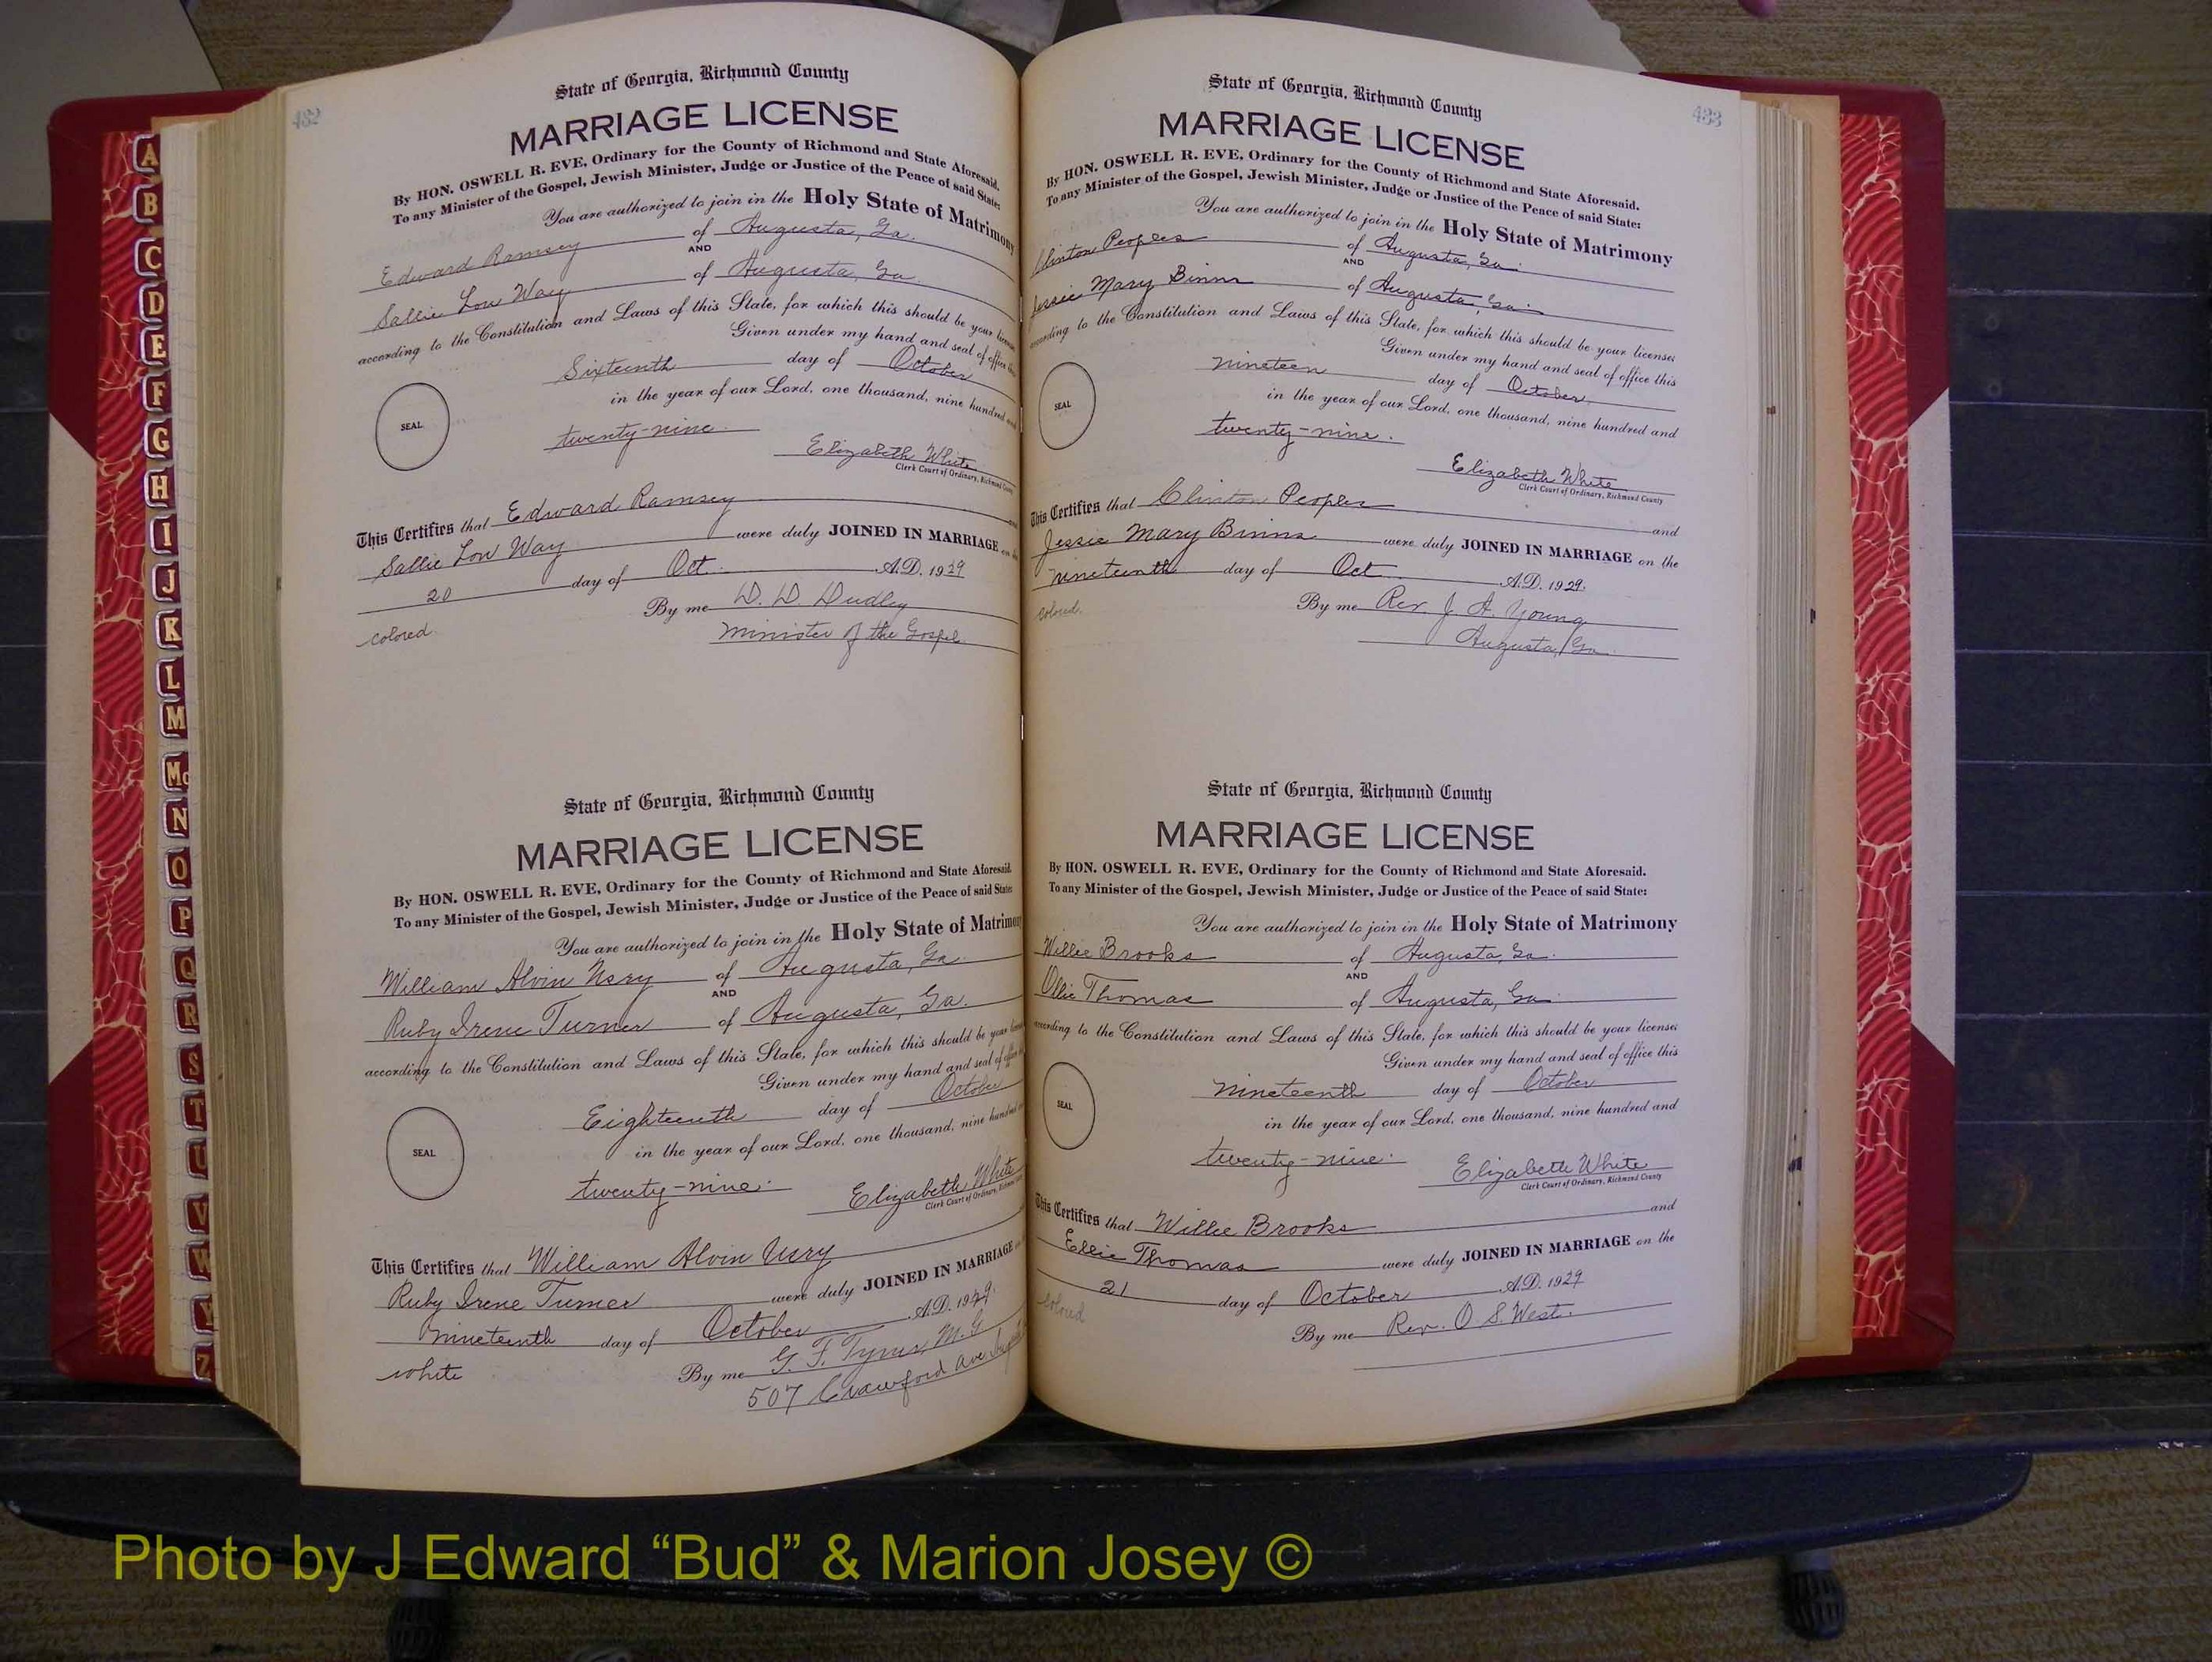 432
State of Georgia, Richmond County
MARRIAGE LICENSE
By HON. OSWELL R. EVE, Ordinary for the County of Richmond and State Aforesaid.
To any Minister of the Gospel, Jewish Minister, Judge or Justice of the Peace of said State:
You are authorized to join in the Holy State of Matrimony
Edward Ramsey of Augusta, Ga.
AND
Sallie Lou Way of Augusta, Ga.
according to the Constitution and Laws of this State, for which this should be your license
Given under my hand and seal of office this
Sixteenth day of October
in the year of our Lord, one thousand, nine hundred and
SEAL
twenty-nine.
Elizabeth White
Clerk Court of Ordinary, Richmond County
This Certifies that Edward Ramsey and
Sallie Lou Way were duly JOINED IN MARRIAGE on the
20 day of Oct. A.D. 1929
By me D. D. Dudley
colored. Minister of the Gospel
State of Georgia, Richmond County
MARRIAGE LICENSE
By HON. OSWELL R. EVE, Ordinary for the County of Richmond and State Aforesaid.
To any Minister of the Gospel, Jewish Minister, Judge or Justice of the Peace of said State
You are authorized to join in the Holy State of Matrimony
William Alvin Usry of Augusta, Ga.
AND
Ruby Irene Turner of Augusta, Ga.
according to the Constitution and Laws of this State, for which this should be your license
Given under my hand and seal of office
Eighteenth day of October
in the year of our Lord, one thousand, nine hundred
SEAL
twenty-nine.
Elizabeth White
Clerk Court of Ordinary, Richmond
This Certifies that William Alvin Usry
Ruby Irene Turner were duly JOINED IN MARRIAGE
nineteenth day of October A.D. 1929.
By me G. F. Tyner, M.G
white 507 Crawford ave.
433
State of Georgia, Richmond County
MARRIAGE LICENSE
By HON. OSWELL R. EVE, Ordinary for the County of Richmond and State Aforesaid.
To any Minister of the Gospel, Jewish Minister, Judge or Justice of the Peace of said State:
You are authorized to join in the Holy State of Matrimony
Clinton Peoples of Augusta, Ga.
AND
Jessie Mary Binns of Augusta, Ga.
according to the Constitution and Laws of this State, for which this should be your license;
Given under my hand and seal of office this
nineteen day of October
in the year of our Lord, one thousand, nine hundred and
SEAL
twenty-nine.
Elizabeth White
Clerk Court of Ordinary, Richmond County
This Certifies that Clinton Peoples and
Jessie Mary Binns were duly JOINED IN MARRIAGE on the
nineteenth day of Oct A.D. 1929.
colored. By me Rev. J. A. Young
Augusta, Ga.
State of Georgia, Richmond County
MARRIAGE LICENSE
By HON. OSWELL R. EVE, Ordinary for the County of Richmond and State Aforesaid.
To any Minister of the Gospel, Jewish Minister, Judge or Justice of the Peace of said State:
You are authorized to join in the Holy State of Matrimony
Willie Brooks of Augusta, Ga.
AND
Ollie Thomas of Augusta, Ga.
according to the Constitution and Laws of this State, for which this should be your license;
Given under my hand and seal of office this
nineteenth day of October
in the year of our Lord, one thousand, nine hundred and
SEAL
twenty-nine.
Elizabeth White
Clerk Court of Ordinary, Richmond County
This Certifies that Willie Brooks and
Ellie Thomas were duly JOINED IN MARRIAGE on the
21 day of October A.D. 1929
colored By me Rev. O. S. West.
A
B
C
D
E
F
G
H
I
J
K
L
M
Mc
N
O
P
Q
R
S
T
U
V
W
Y
Z
Photo by J Edward “Bud” & Marion Josey ©